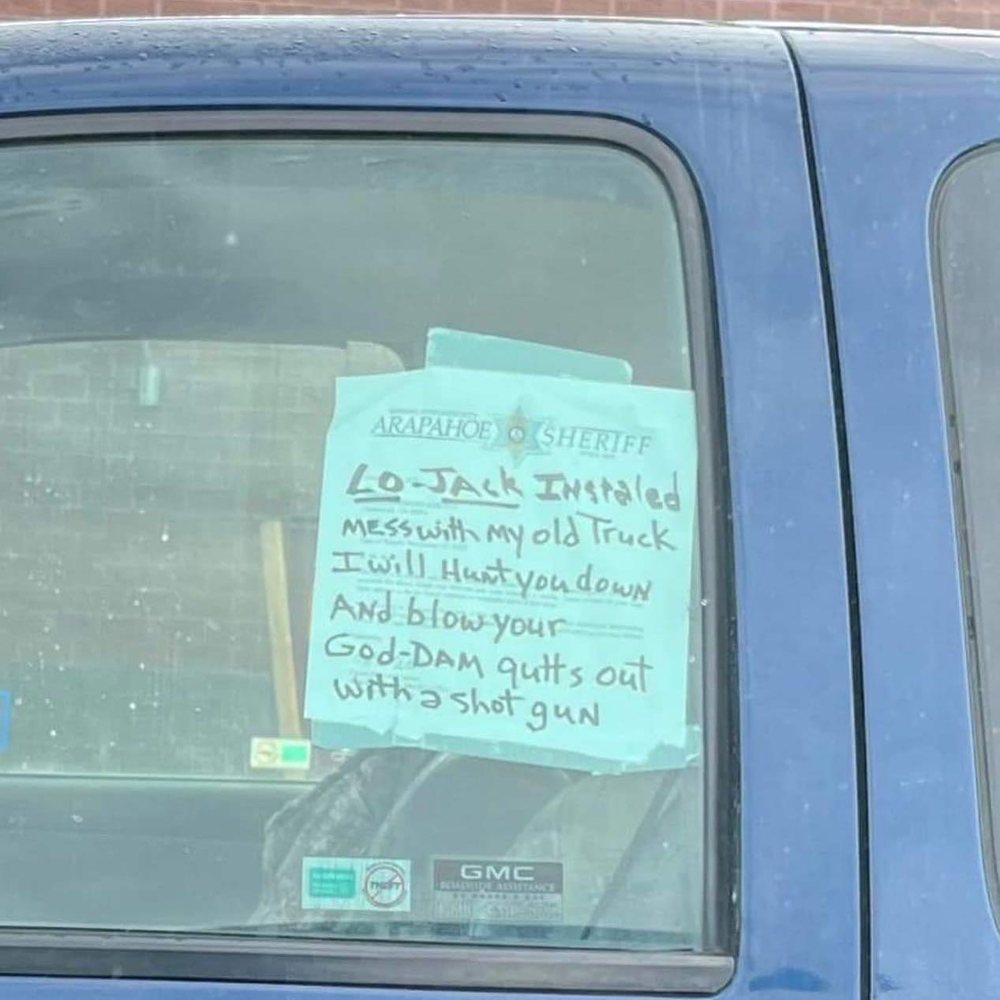 ARAPAHOE SHERIFF
LO-JACK INstaled
MESS with my old Truck
I will Hunt you down
ANd blow your
God-DAM qutts out
with a shot guN
THEFT
GMC
ROADSIDE ASSISTANCE